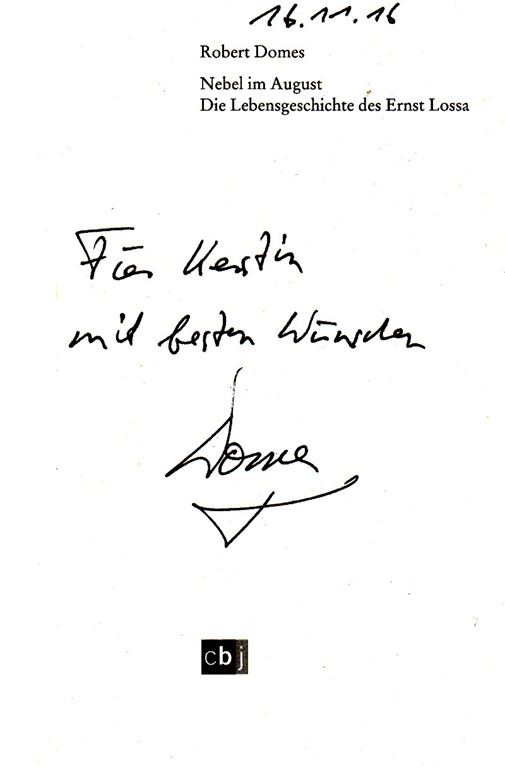 16.11.16
Robert Domes
Nebel im August
Die Lebensgeschichte des Ernst Lossa
Für Kerstin
mit besten Wünschen
Domes
cbj